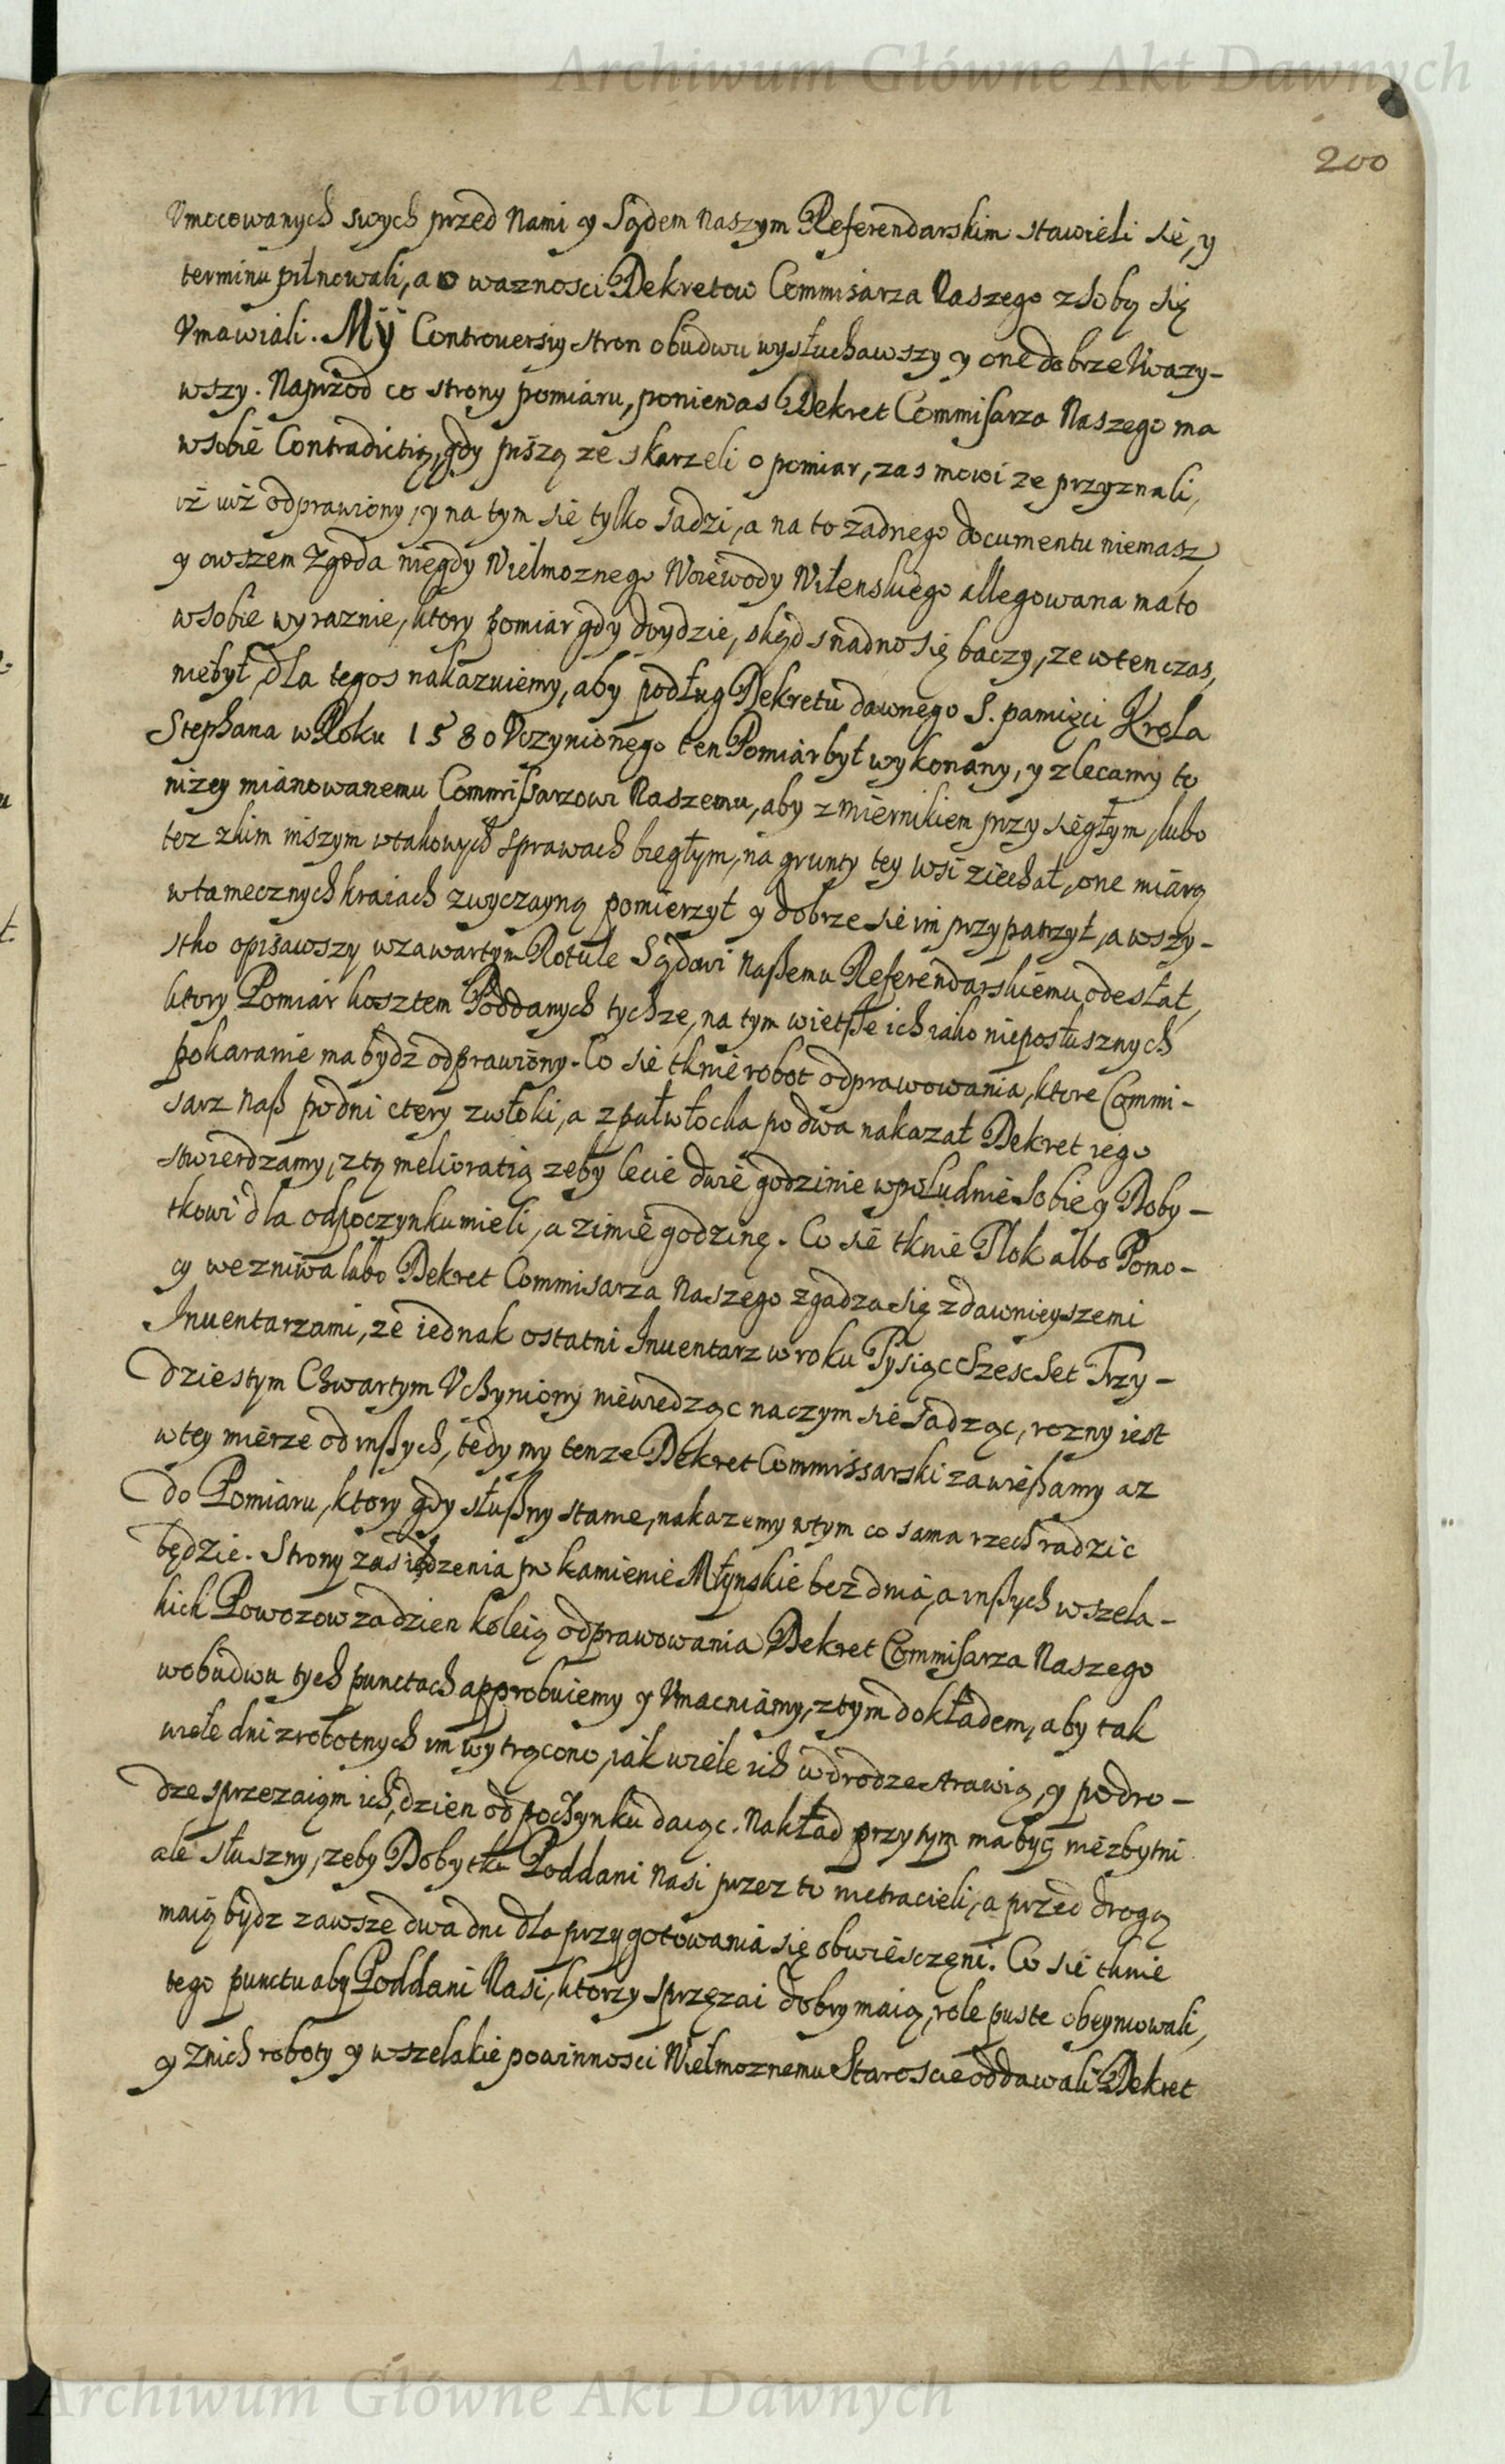 Archiwum Główne Akt Dawnych
200
Vmocowanych swych przed Nami y Sądem Naszym Referendarskim stawieli się, y
terminu pilnowali, a o waznosci Dekretow Commisarza Naszego z sobą się
Vmawiali. My Controuersiy stron obudwu wysłuchawszy y one dobrze Vwazy-
wszy. Naprzod co strony pomiaru, poniewas Dekret Commisarza Naszego ma
w sobie Contradictią, gdy piszą ze skarzeli o pomiar, zas mowi ze przyznali,
iż iuż odprawiony, y na tym się tylko sadzi, a na to zadnego documentu niemasz,
y owszem Zgoda niegdy Wielmoznego Woiewody Wilenskiego allegowana ma to
w sobie wyraznie, ktory pomiar gdy doydzie, skąd snadno się baczy, ze wtenczas,
niebył, dla tegos nakazuiemy, aby podług Dekretu dawnego S. pamięci Krola
Stephana w Roku 1580 Vczynionego ten Pomiar był wykonany, y zlecamy to
nizey mianowanemu Commissarzowi Naszemu, aby z miernikiem przysięgłym, lubo
tez z kim inszym w takowych sprawach biegłym, na grunty tey wsi ziechał, one miarą
w tamecznych kraiach zwyczayną pomierzył y dobrze się im przypatrzył, a wszy-
stko opisawszy w zawartym Rotule Sądowi Naszemu Referendarskiemu odesłał,
ktory Pomiar kosztem Poddanych tychze, na tym wietsze ich iako nieposłusznych
pokaranie ma bydz odprawiony. Co się tknie robot odprawowania, ktore Commi-
sarz Nasz po dni ctery z włoki, a z pułwłocka po dwa nakazał Dekret iego
stwierdzamy, z tą melioratią zeby lecie dwie godzinie w południe sobie y Doby-
tkowi dla odpoczynku mieli, a zimie godzinę. Co się tknie Tłok albo Pomo-
cy we zniwa lubo Dekret Commisarza Naszego zgadza się z dawnieyszemi
Inuentarzami, ze iednak ostatni Inuentarz w roku Tysiąc Szesc Set Trzy-
dziestym Chwartym Vczyniony niewiedząc na czym się sadząc, rozny iest
w tey mierze od inszych, tedy my tenze Dekret Commissarski zawieszamy az
do Pomiaru, ktory gdy słuszny stanie, nakazemy w tym co sama rzecz radzic
będzie. Strony zas iędzenia po kamienie Młynskie bez dnia, a inszych wszela-
kich Powozow za dzien koleią odprawowania Dekret Commisarza Naszego
w obudwu tych punctach approbuiemy y Vmacniamy, z tym dokładem, aby tak
wiele dni z robotnych im wytrącono, iak wiele ich w drodze strawią, y po dro-
dze sprzezaiąm ich, dzien odpoczynku daiąc. Nakład przytym ma być niezbytni
ale słuszny, zeby Dobytku Poddani Nasi przez to nietracieli, a przed drogą
maią bydz zawsze dwa dni dla przygotowania się obwiesczęni. Co się tknie
tego punctu aby Poddani Nasi, ktorzy sprzęzai dobry maią, role puste obeymowali,
y z nich roboty y wszelakie powinnosci Wielmoznemu Staroscie oddawali Dekret
Archiwum Główne Akt Dawnych